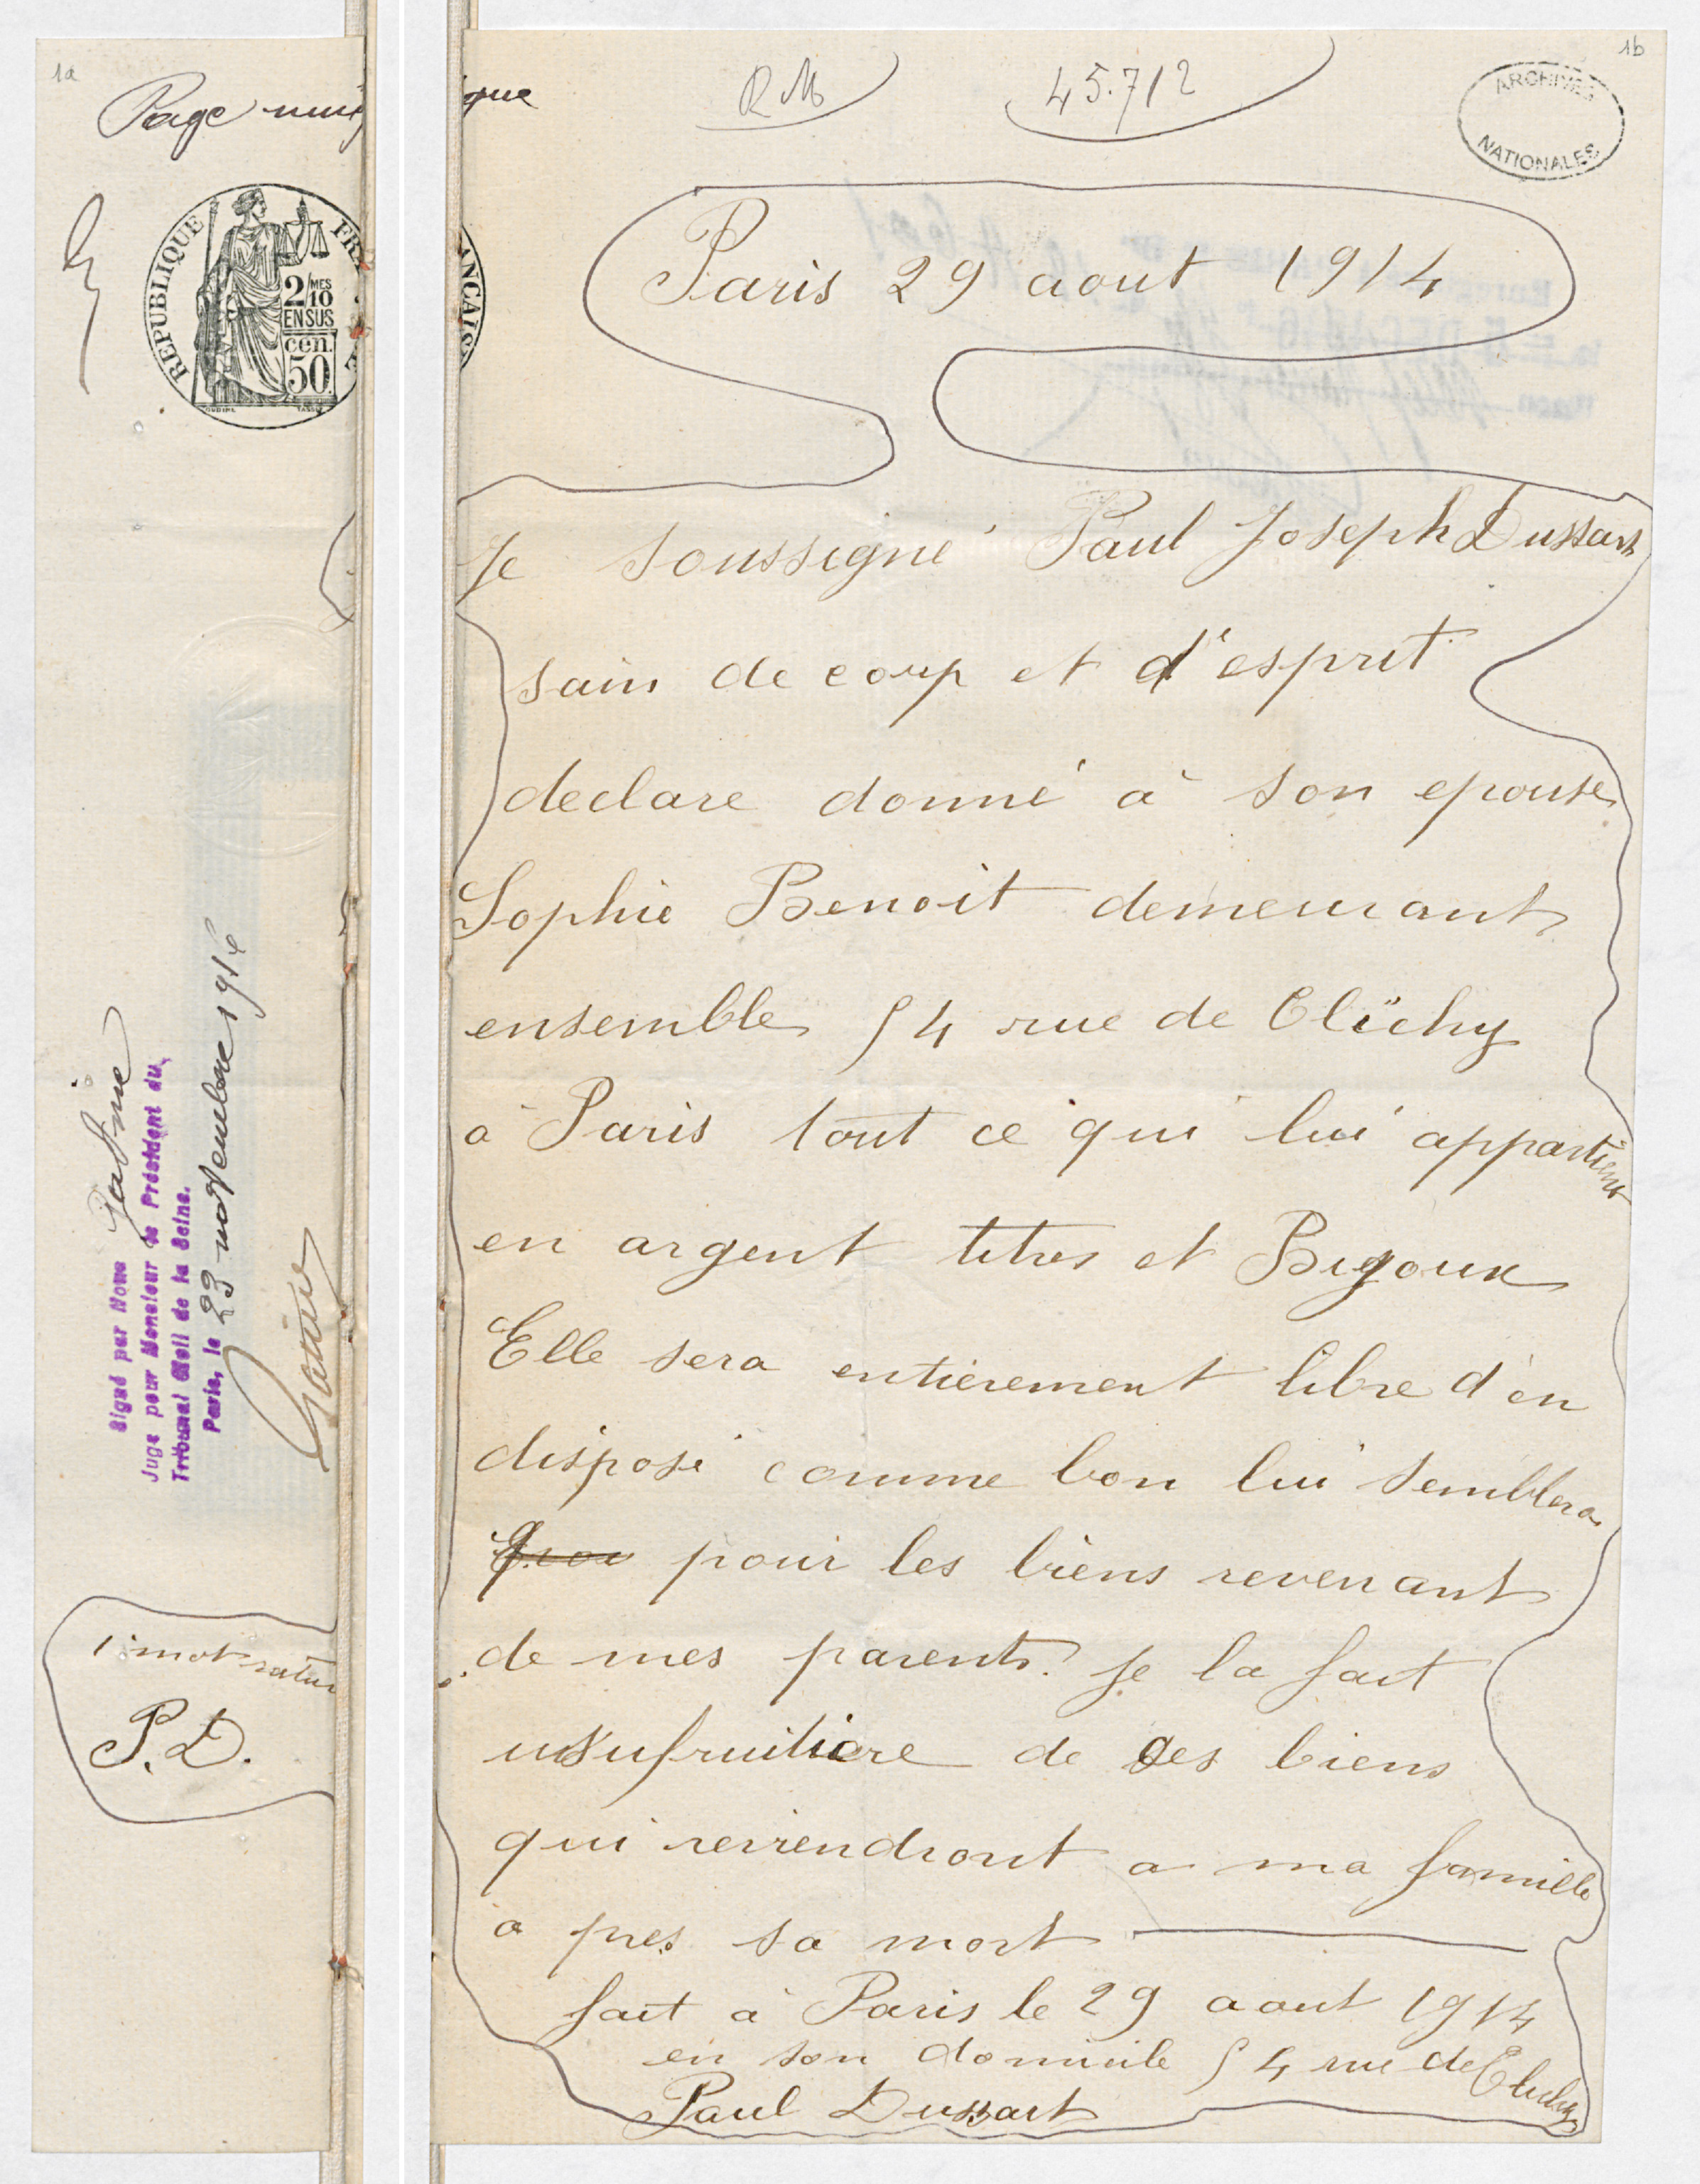 1a
Page unique
RÉPUBLIQUE FRANÇAISE
2/10 MES
EN SUS
cen.
50
Signé par Nous Jastine
Juge pour Monsieur le Président du
Tribunal Civil de la Seine.
Paris, le 23 novembre 1916
1 mot raturé
P.D.
1b
RM 45.712
ARCHIVES
NATIONALES
Paris 29 aout 1914
Je soussigné Paul Joseph Dussart
sain de corp et d'esprit
declare donné à son epouse
Sophie Benoit demeurant
ensemble 54 rue de Clichy
à Paris tout ce qui lui appartient
en argent titres et Bijoux
Elle sera entièrement libre d'en
disposé comme bon lui semblera
pour les biens revenant
de mes parents. Je la fait
usufruitière de ses biens
qui reviendront a ma famille
a pres sa mort
fait à Paris le 29 aout 1914
en son domicile 54 rue de Clichy
Paul Dussart